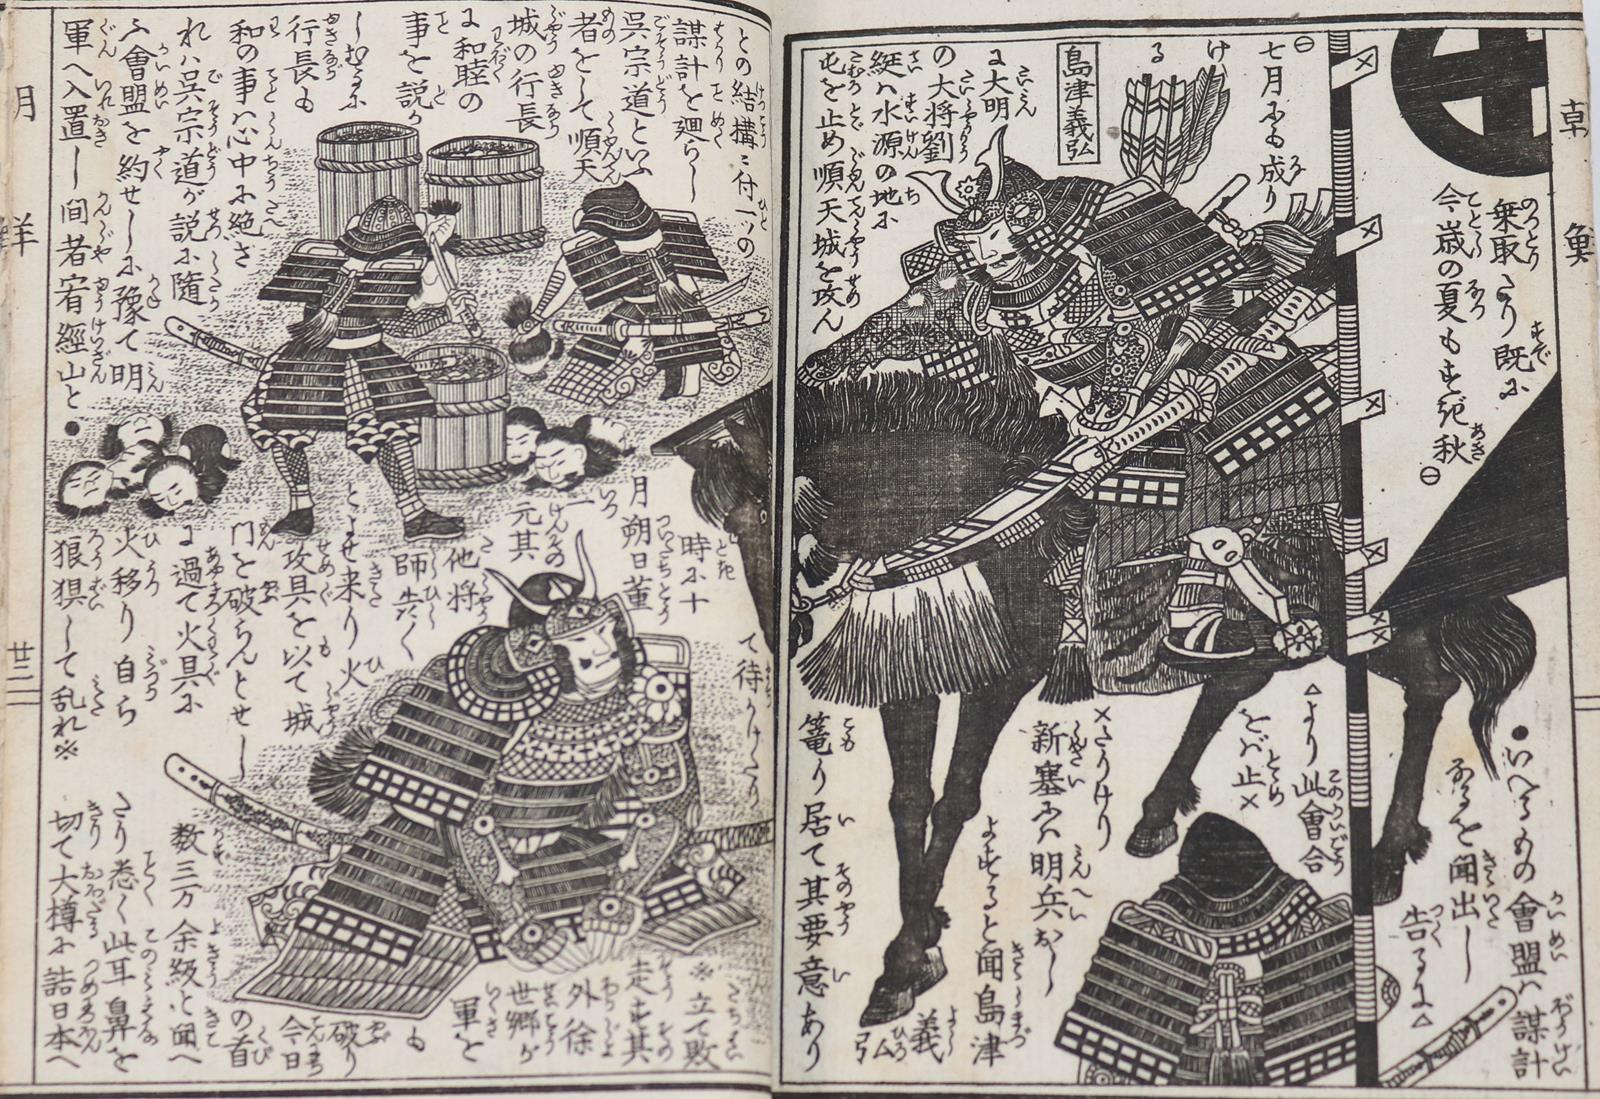 乗取たり既に
今歳の夏もすぎ秋㊀
㊀七月にも成り
ける
島津義弘
に大明
の大将劉
綎ハ水源の地に
屯を止め順天城を攻ん
との結構に付一つの
謀計を廻らし
呉宗道といふ
者をして順天
城の行長
に和睦の
事を説か
しむるに
行長も
和の事ハ心中に絶ざ
れハ呉宗道が説に随
ふ會盟を約せしに豫て明
軍へ入置し間者宥經山と●
●いへるもの會盟ハ謀計
なるを聞出し
告る△
△より此會合
をバ止×
×たりけり
新塞にハ明兵おし
よすると聞島津
義弘
篭り居て其要意あり
て待かけたり
時に十
月朔日董
一
元其
他将
師共く
よせ来り火
攻具を以て城
門を破らんとせし
に過て火具に
火移り自ら
狼狽して乱れ※
※立て敗
走す其
外徐
世郷が
軍をも
破り
今日の首
数三万余級と聞へ
たり悉く此耳鼻を
切て大樽に詰日本へ
廿三